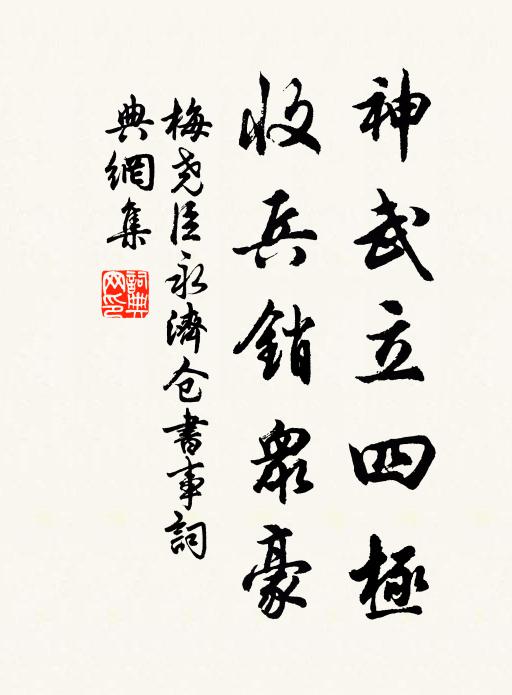 神武立四極
收兵銷眾豪
梅尧臣永濟仓書事詞
典網集
詞典
网印